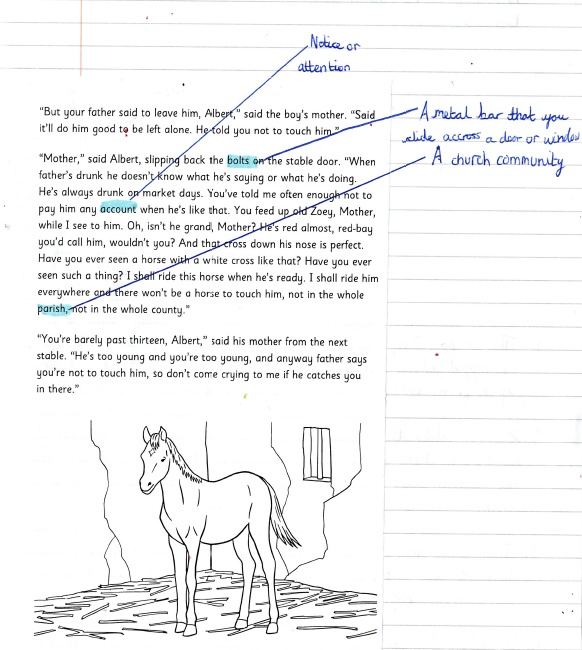 Notice or
attention
"But your father said to leave him, Albert," said the boy's mother. "Said
it'll do him good to be left alone. He told you not to touch him."
A metal bar that you
slide accross a door or window
"Mother," said Albert, slipping back the bolts on the stable door. "When
A church community
father's drunk he doesn't know what he's saying or what he's doing.
He's always drunk on market days. You've told me often enough not to
pay him any account when he's like that. You feed up old Zoey, Mother,
while I see to him. Oh, isn't he grand, Mother? He's red almost, red-bay
you'd call him, wouldn't you? And that cross down his nose is perfect.
Have you ever seen a horse with a white cross like that? Have you ever
seen such a thing? I shall ride this horse when he's ready. I shall ride him
everywhere and there won't be a horse to touch him, not in the whole
parish, not in the whole county."
"You're barely past thirteen, Albert," said his mother from the next
stable. "He's too young and you're too young, and anyway father says
you're not to touch him, so don't come crying to me if he catches you
in there."